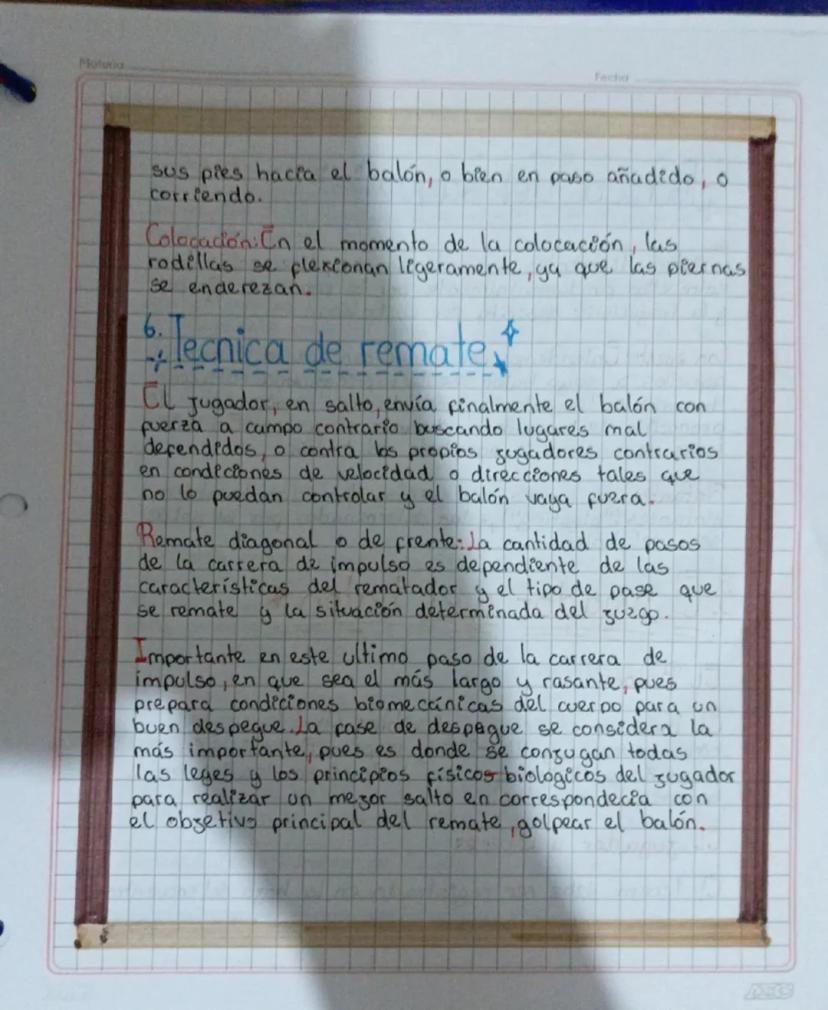 Materia
Fecha
sus pies hacia el balón, o bien en paso añadido, o
corriendo.
Colocación: En el momento de la colocación, las
rodillas se flexionan ligeramente, ya que las piernas
se enderezan.
6. Tecnica de remate
El jugador, en salto, envía finalmente el balón con
fuerza a campo contrario buscando lugares mal
defendidos, o contra los propios jugadores contrarios
en condiciones de velocidad o direcciones tales que
no lo puedan controlar y el balón vaya fuera.
Remate diagonal o de frente: La cantidad de pasos
de la carrera de impulso es dependiente de las
características del rematador y el tipo de pase que
se remate y la situación determinada del juego.
Importante en este ultimo paso de la carrera de
impulso, en que sea el más largo y rasante, pues
prepara condiciones biomecánicas del cuerpo para un
buen despegue. La fase de despegue se considera la
más importante, pues es donde se conjugan todas
las leges y los principios físicos biologicos del jugador
para realizar un mejor salto en correspondecia con
el objetivo principal del remate, golpear el balón.